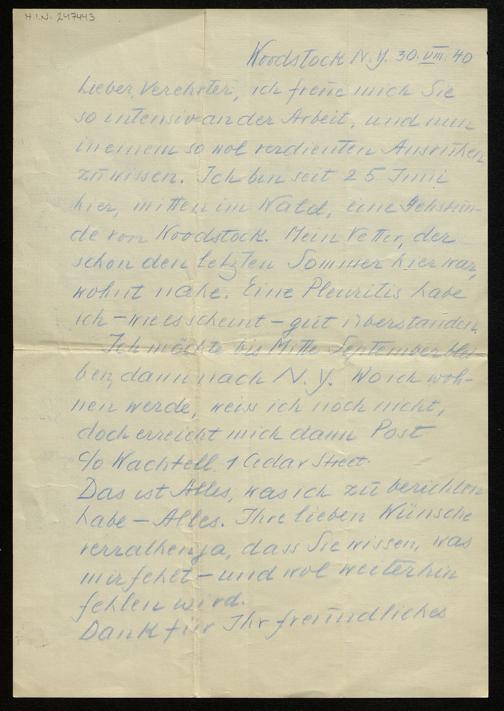 H.I.N. 247443
Woodstock N.Y. 30.VIII.40
Lieber, Verehrter, ich freue mich Sie
so intensiv an der Arbeit, und nun
in einem so wol verdienten Ausruhen
zu wissen. Ich bin seit 25 Juni
hier, mitten im Wald, eine Gehstun-
de von Woodstock. Mein Vetter, der
schon den letzten Sommer hier war,
wohnt nahe. Eine Pleuritis habe
ich – wie es scheint – gut überstanden.
Ich möchte bis Mitte September blei-
ben, dann nach N.Y. Wo ich woh-
nen werde, weiss ich noch nicht,
doch erreicht mich dann Post
c/o Wachtell, 1 Cedar Street.
Das ist Alles, was ich zu berichten
habe – Alles. Ihre lieben Wünsche
verrathen ja, dass Sie wissen, was
mir fehlt – und wol weiterhin
fehlen wird.
Dank für Ihr freundliches